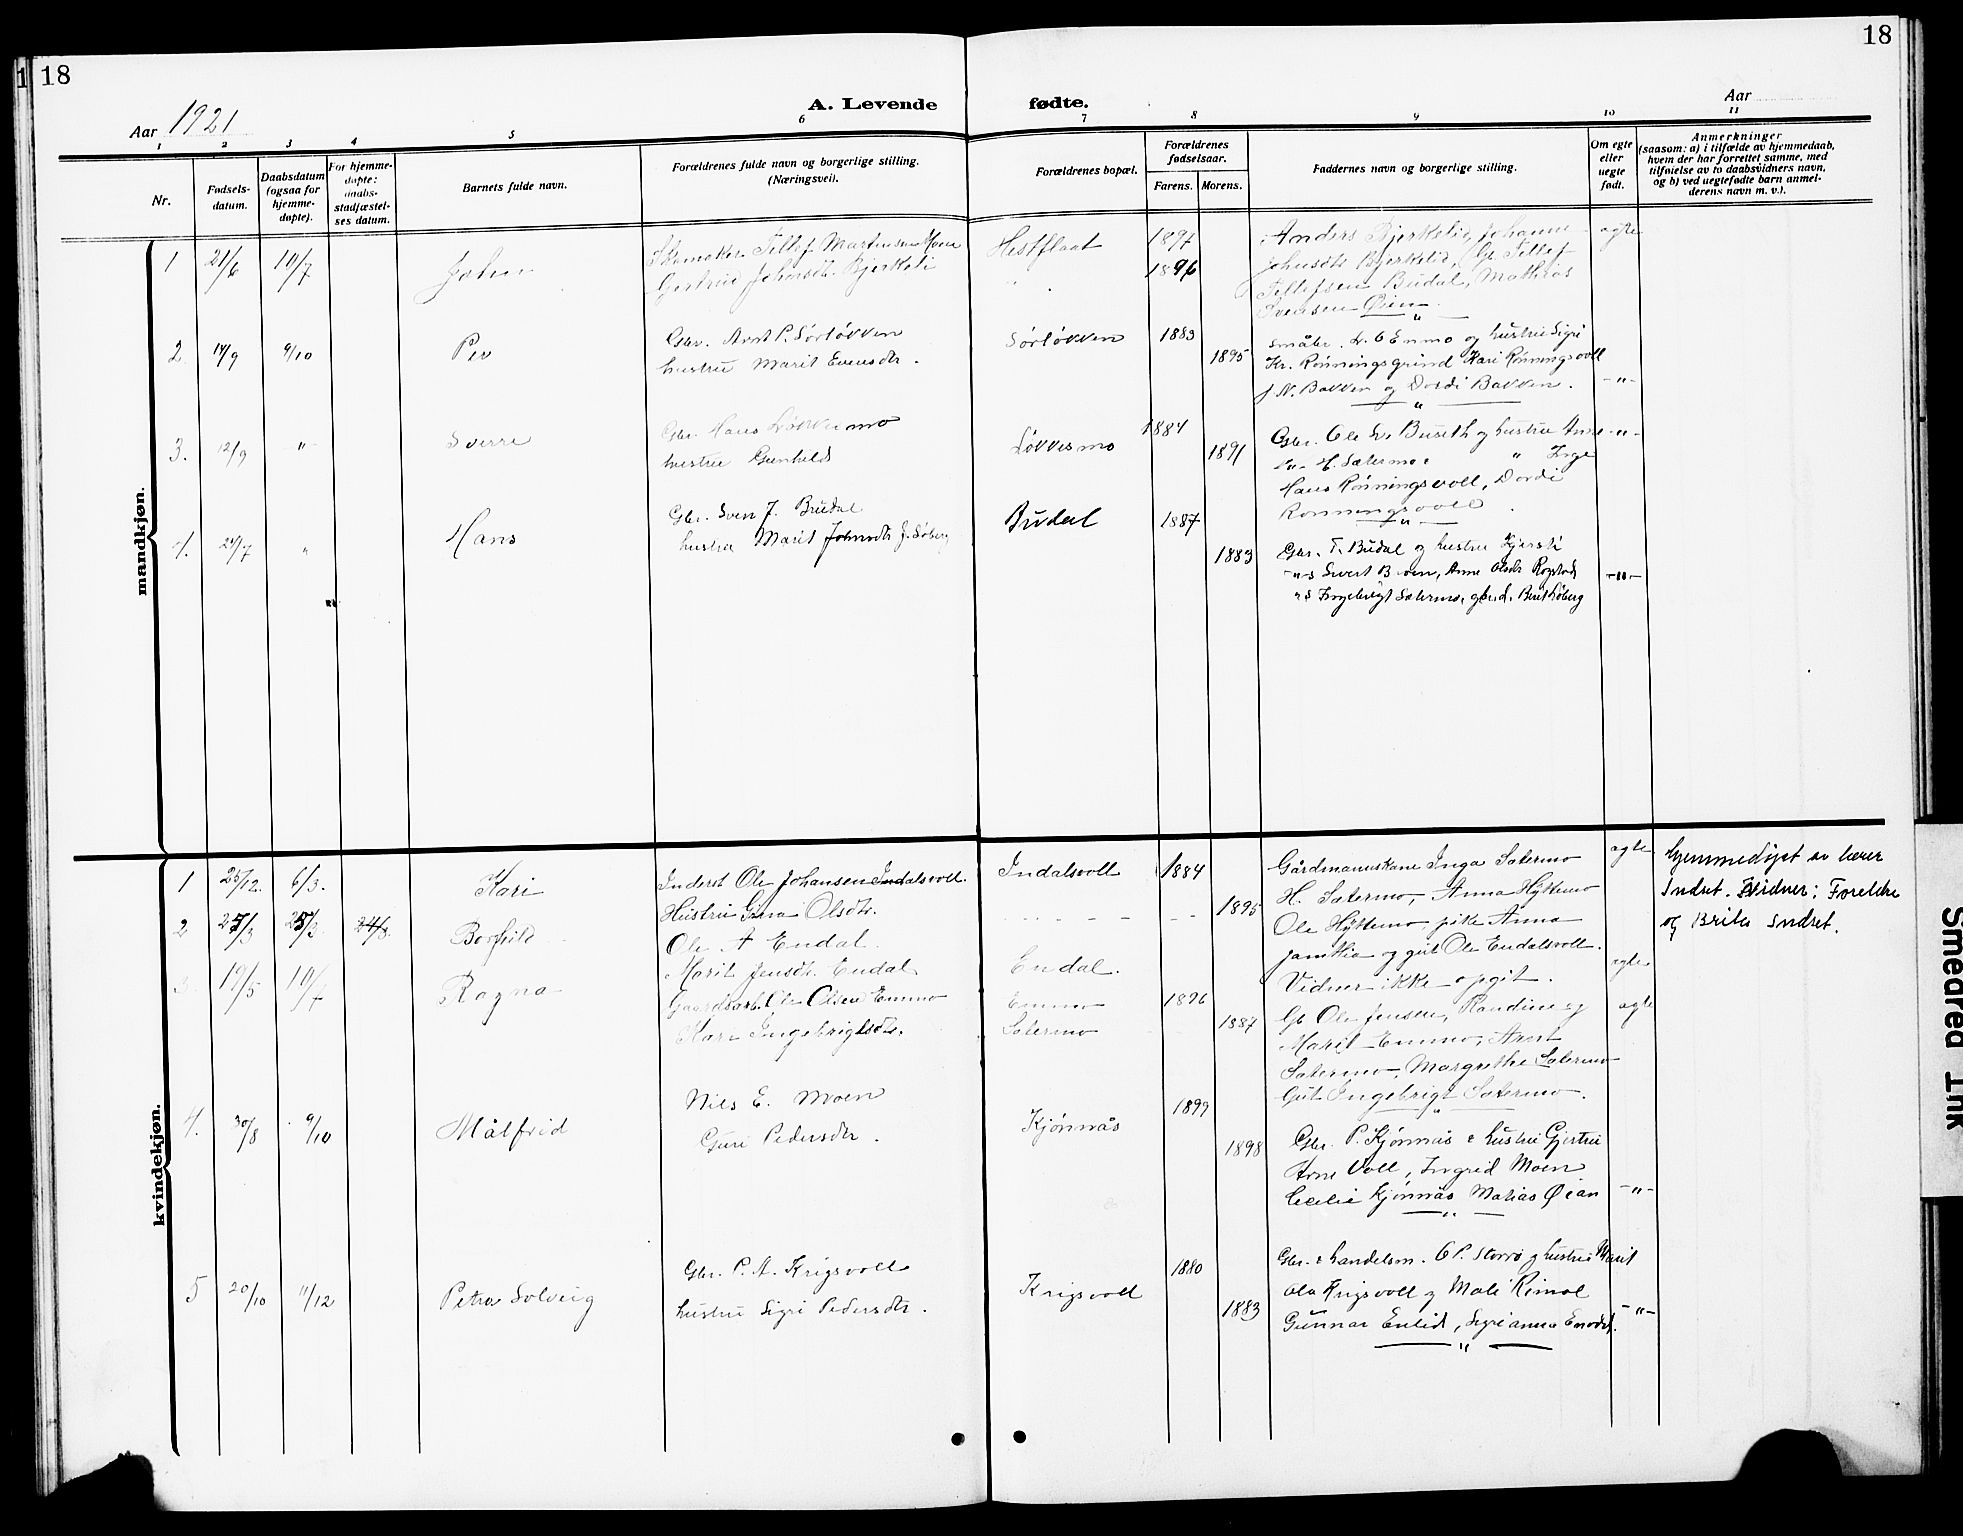 18
18
A. Levende fødte.
Aar 1921
Aar
1 2 3 4 5 6 7 8 9 10 11
Nr.
Fødsels-
datum.
Daabsdatum
(ogsaa for
hjemme-
døpte).
For hjemme-
døpte:
daabs-
stadfæstel-
ses datum.
Barnets fulde navn.
Forældrenes fulde navn og borgerlige stilling.
(Næringsvei).
Forældrenes bopæl.
Forældrenes
fødselsaar.
Farens. Morens.
Faddernes navn og borgerlige stilling.
Om egte
eller
uegte
født.
Anmerkninger
(saasom: a) i tilfælde av hjemmedaab,
hvem der har forrettet samme, med
tilføielse av to daabsvidners navn,
og b) ved uegtefødte barn anmel-
derens navn m. v.).
mandkjøn.
1 21/6 10/7 Johan
Skomaker Tellef Martinsen Moen
Gertrud Johnsdt. Bjerkeli
Hestflaat
1897
1896
Anders Bjerkeli, Johanne
Johnsdt. Bjerkeli, Gb. Tellef
Tellefsen Budal, Mathias
Svensen Øien
egte
2. 14/9 9/10 Per
Gbr. Arnt P. Sørløkken
hustru Marit Evensdtr.
Sørløkken
1883
1895
småbr. L. O Enmo og hustru Sigri
Kr. Rønningsgrind Kari Rønningsvoll
J. N. Bakken og Dordi Bakken.
-"-
3. 12/9 -"- Sverre
Gbr. Hans Løkkesmo
hustru Gunhild
Løkkesmo
1884
1891
Gbr. Ole Buseth og hustru Anne
-"- H. Sætermo " Inga
Hans Rønningsvoll, Dordi
Rønningsvoll
-"-
4. 24/7 " Hans
Gbr. Sven J. Budal
hustru Marit Johnsdtr J. Søberg
Budal
1887
1883
Gbr. T. Budal og hustru Kjersti
-"- Sivert Bjoen, Anne Olsdtr Rogstad
"- Ingebrigt Sætermo, gbr.d. Berit Søberg
-"-
kvindekjøn.
1 25/12. 6/3. Kari
Inderst Ole Johansen Indalsvoll.
Hustru Gina Olsdtr.
Indalsvoll
1884
1895
Gårdmannskone Inga Sætermo
H. Sætermo, Anna Hyttemo
Ole Hyttemo, pike Anna
Jamthia og gut Ole Endalsvoll.
egte
Hjemmedøpt av lærer
Indset. Vidner: Foreldre
og Brita Indset.
2 27/3 25/3. 24/8. Borghild
Ole A Endal.
Marit Jensdt. Endal
Endal.
Vidner ikke opgit.
egte
3. 19/5 10/7 Ragna
Gaardsarb. Ole Olsen Enmo
Kari Ingebrigtsdtr.
Enmo
Sætermo
1896
1887
Gb Ole Jensen, Randine og
Marit Enmo, Arnt
Sætermo, Margrethe Sætermo
Gut Ingebrigt Sætermo.
egte
4. 30/8 9/10 Målfrid
Nils E. Moen
Guri Pedersdtr.
Kjønnås
1899
1898
Gbr. P. Kjønnås & hustru Gjertrud
Arne Voll, Ingrid Moen
Cecilie Kjønnås Matias Øian
-"-
5 20/10 11/12 Petra Solveig
Gbr. P. A. Krigsvoll
hustru Sigri Pedersdtr.
Krigsvoll
1880
1883
Gbr. & handelsm. O P. Storrø og hustru Marit
Ola Krigsvoll og Mali Rimol
Gunnar Enlid, Sigrianna Enodd.
-"-
Smeared Ink